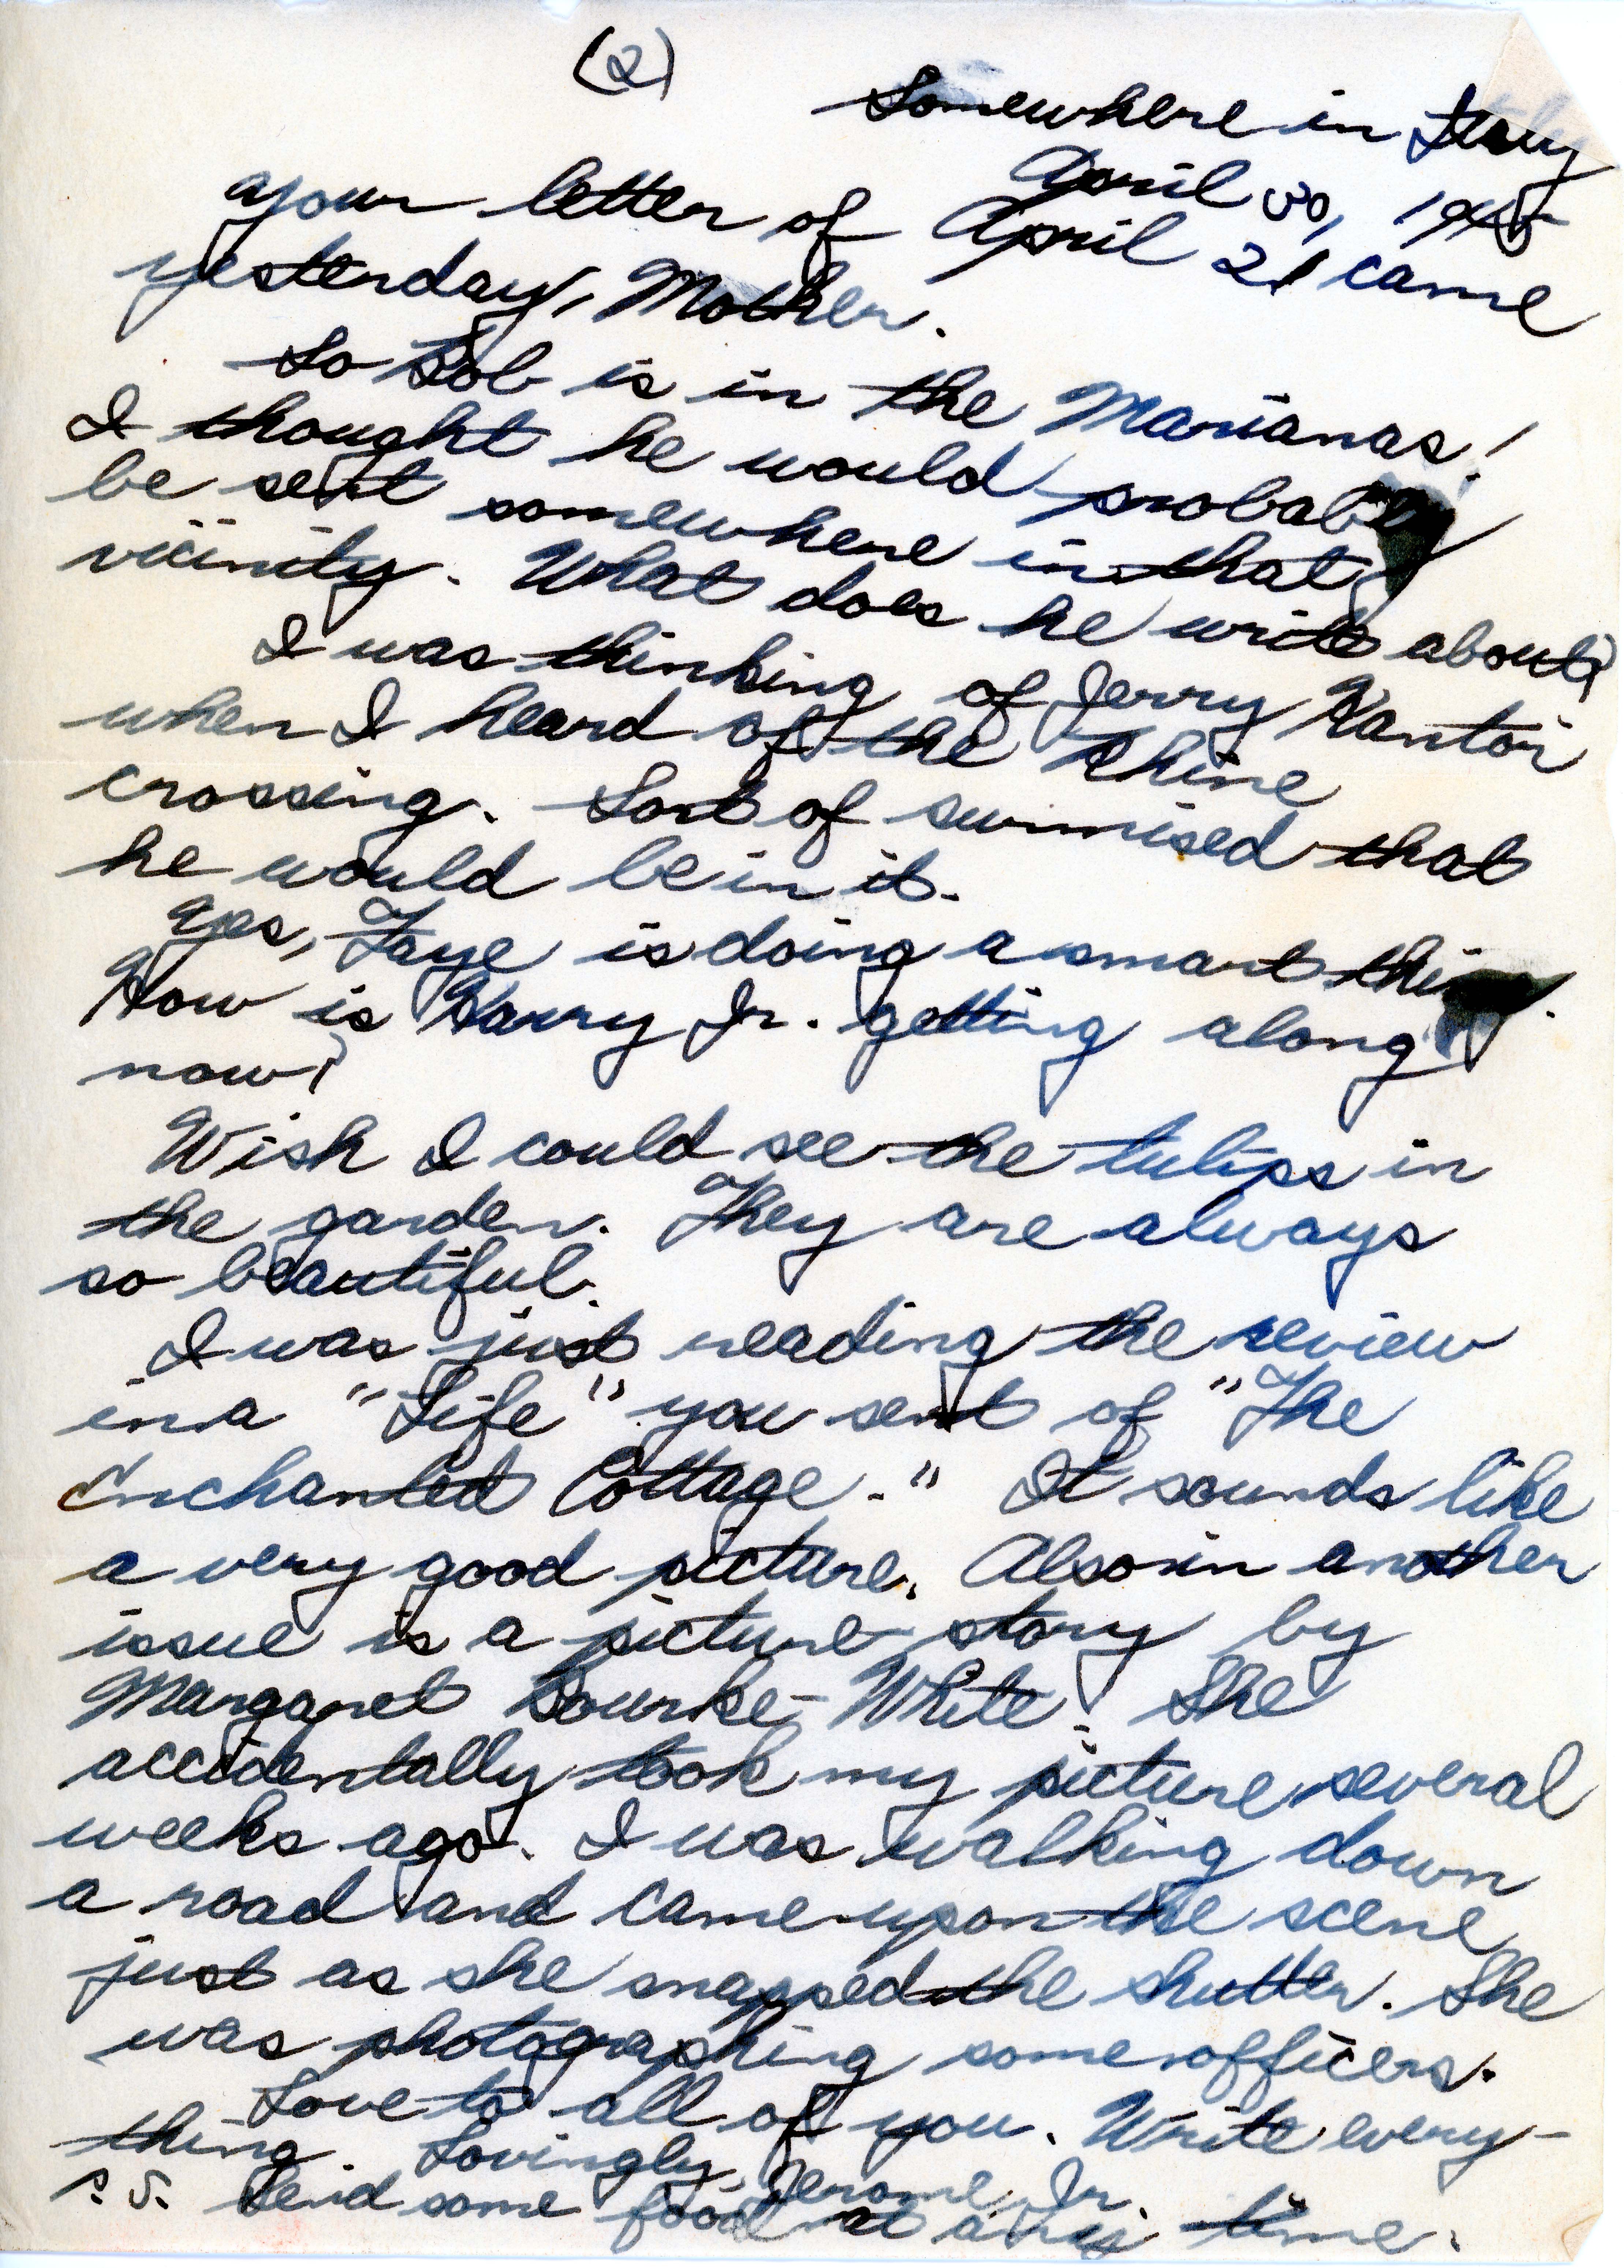 (2)
Somewhere in Italy
April 30, 1945
Your letter of April 21 came
yesterday, Mother.
So Bob is in the Marianas!
I thought he would probably
be sent somewhere in that
vicinity. What does he write about?
I was thinking of Jerry Kantor
when I heard of the Rhine
crossing. Sort of surmised that
he would be in it.
Yes, Faye is doing a smart thing.
How is Harry Jr. getting along
now?
Wish I could see the tulips in
the garden. They are always
so beautiful.
I was just reading the review
in a "Life" you sent of "The
Enchanted Cottage." It sounds like
a very good picture. Also in another
issue is a picture story by
Margaret Bourke-White. She
accidentally took my picture several
weeks ago. I was walking down
a road and came upon the scene
just as she snapped the shutter. She
was photographing some officers.
Love to all of you. Write every-
thing. Lovingly, Jerome Jr.
P.S. Send some food at any time.